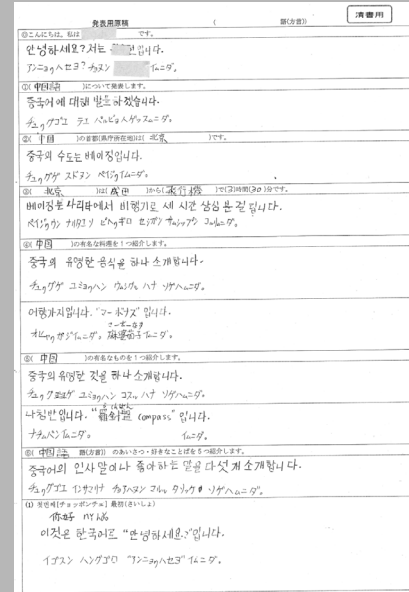 清書用
発表用原稿 ( 語(方言))
◎こんにちは。私は です。
안녕하세요? 저는 입니다.
アンニョンハセヨ? チョヌン イムニダ。
①( 中国語 )について発表します。
중국어에 대해 발표하겠습니다.
チュングゴエ テヘ パルピョハゲッスムニダ。
②( 中国 )の首都(県庁所在地)は( 北京 )です。
중국의 수도는 베이징입니다.
チュングゲ スドヌン ペイジンイムニダ。
③( 北京 )は( 成田 )から( 飛行機 )で(3)時間(30)分です。
베이징은 나리타에서 비행기로 세 시간 삼십 분 걸립니다.
ペイジウン ナリタエソ ピヘンギロ セシガン サムシップン コルリムニダ。
④( 中国 )の有名な料理を1つ紹介します。
중국의 유명한 음식을 하나 소개합니다.
チュングゲ ユミョンハン ウムシグル ハナ ソゲハムニダ。
어향가지입니다. "マーボナス" 입니다.
オヒャンガジイムニダ。 麻婆茄子イムニダ。
⑤( 中国 )の有名なものを1つ紹介します。
중국의 유명한 것을 하나 소개합니다.
チュングゲ ユミョンハン コスル ハナ ソゲハムニダ。
나침반입니다. "羅針盤 compass" 입니다.
ナチムバンイムニダ。 イムニダ。
⑥( 中国語 語(方言)) のあいさつ・好きなことばを5つ紹介します。
중국어의 인사말이나 좋아하는 말을 다섯 개 소개합니다.
チュングゴエ インサマリナ チョアハヌン マルル タソッケ ソゲハムニダ。
(1) 첫번째[チョッポンチェ] 最初(さいしょ)
你好
이것은 한국어로 "안녕하세요?"입니다.
イゴスン ハングゴロ "アンニョンハセヨ" イムニダ。